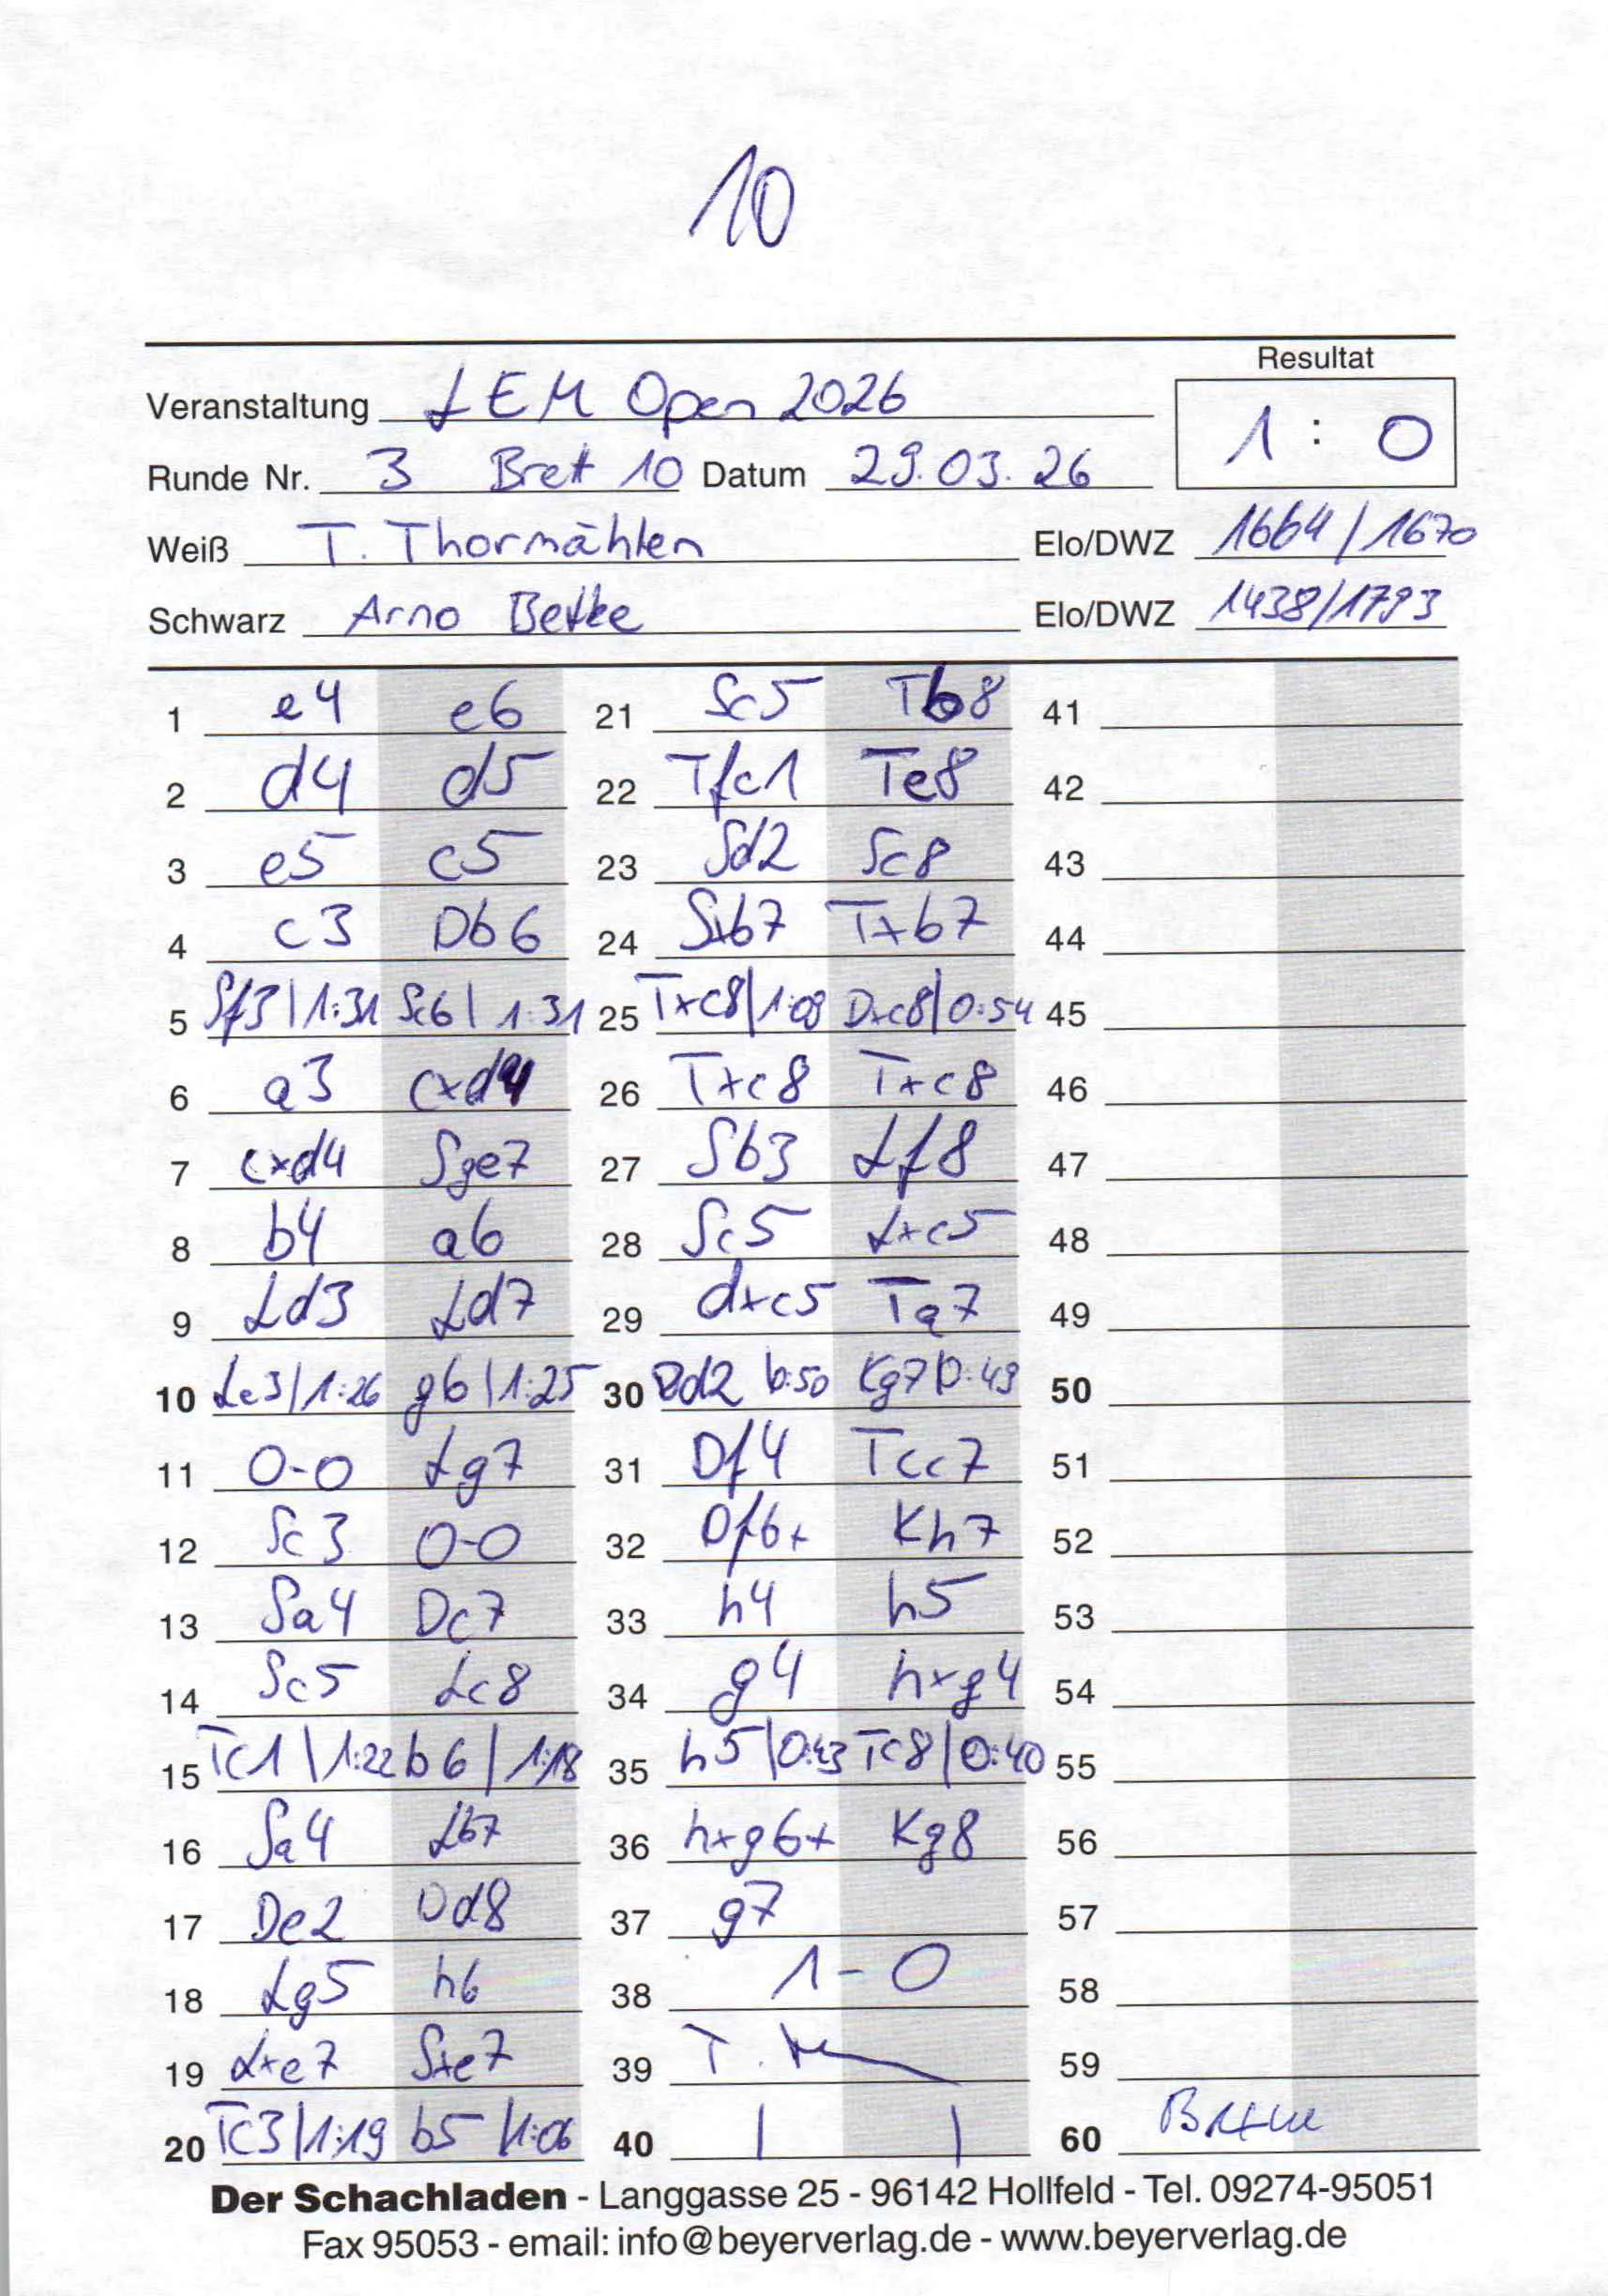 10
Resultat
Veranstaltung LEM Open 2026 1 : 0
Runde Nr. 3 Brett 10 Datum 29.03.26
Weiß T. Thormählen Elo/DWZ 1664/1670
Schwarz Arno Betke Elo/DWZ 1438/1793
1 e4 e6 21 Sc5 Tb8 41
2 d4 d5 22 Tfc1 Te8 42
3 e5 c5 23 Sd2 Sc8 43
4 c3 Db6 24 Sxb7 Txb7 44
5 Sf3|1:31 Sc6|1:31 25 Txc8|1:09 Dxc8|0:54 45
6 a3 cxd4 26 Txc8 Txc8 46
7 cxd4 Sge7 27 Sb3 Lf8 47
8 b4 a6 28 Sc5 Lxc5 48
9 Ld3 Ld7 29 dxc5 Ta7 49
10 Le3|1:26 g6|1:25 30 Dd2 0:50 Kg7|0:49 50
11 0-0 Lg7 31 Df4 Tcc7 51
12 Sc3 0-0 32 Df6+ Kh7 52
13 Sa4 Dc7 33 h4 h5 53
14 Sc5 Lc8 34 g4 hxg4 54
15 Tc1|1:22 b6|1:18 35 h5|0:43 Tc8|0:40 55
16 Sa4 Lb7 36 hxg6+ Kg8 56
17 De2 Dd8 37 g7 57
18 Lg5 h6 38 1-0 58
19 Lxe7 Sxe7 39 T. 59
20 Tc3|1:19 b5|1:06 40 60
Der Schachladen - Langgasse 25 - 96142 Hollfeld - Tel. 09274-95051
Fax 95053 - email: info@beyerverlag.de - www.beyerverlag.de